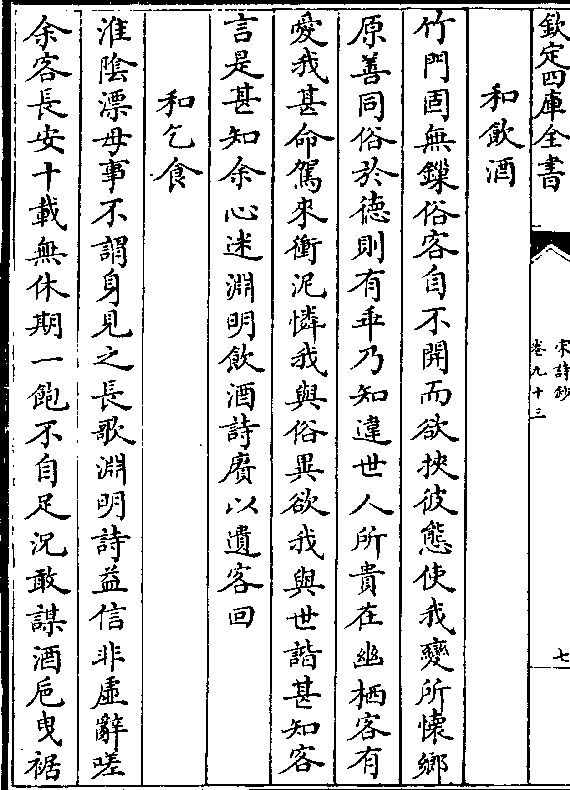 欽定四庫全書
宋詩鈔
卷九十三
七
和飲酒
竹門固無鏁俗客自不開而欲挾彼態使我變所懷鄉
原善同俗於德則有乖乃知違世人所貴在幽栖客有
愛我甚命駕來衝泥憐我與俗異欲我與世諧甚知客
言是甚知余心迷淵明飲酒詩賡以遺客回
和乞食
淮陰漂母事不謂身見之長歌淵明詩益信非虛辭嗟
余客長安十載無休期一飽不自足況敢謀酒卮曳裾